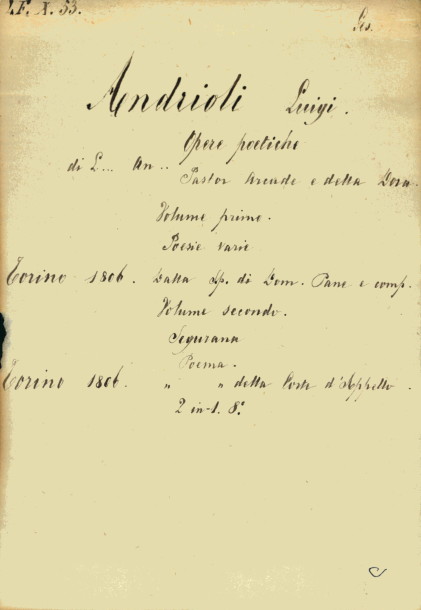 I.F. X. 53.
Andrioli Luigi.
Opere poetiche
di L... An..
Pastor Arcade e della Dora.
Volume primo.
Poesie varie
Torino 1806. Dalla Sp. di Dom. Pane e comp.
Volume secondo.
Segurana
Poema.
Torino 1806. „ „ della Corte d'Appello.
2 in-1. 8°